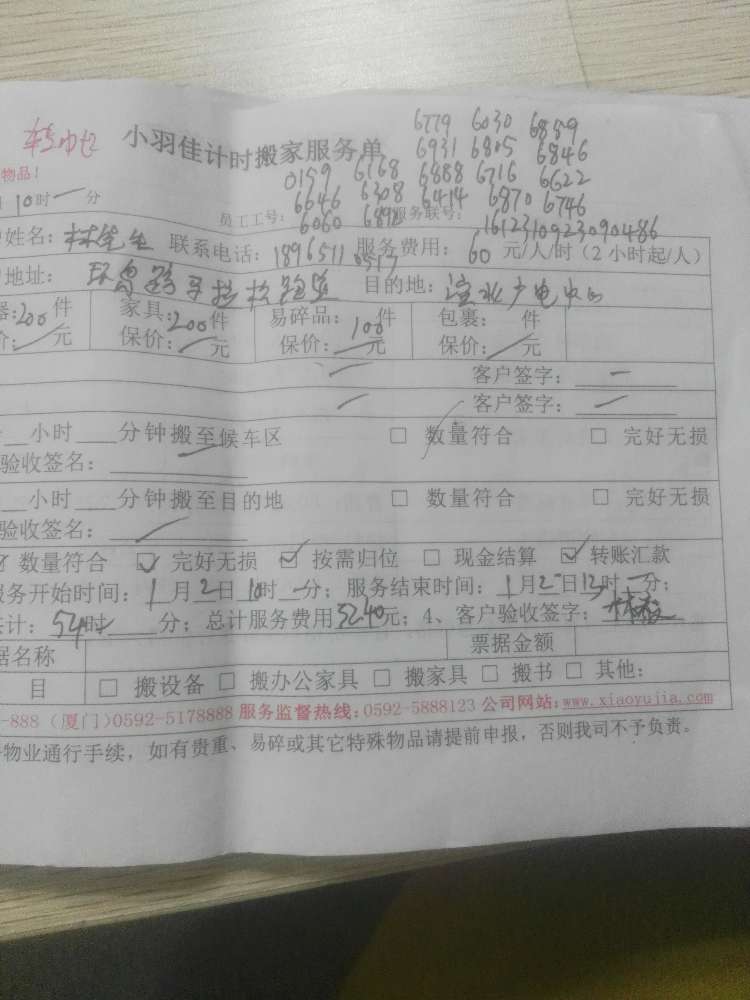 小羽佳计时搬家服务单
6779 6030 6859
6931 6805 6846
物品！
0159 6168 6888 6716 6622
10时一分
6646 6308 6414 6870 6746
员工工号： 6060 6892 服务联号： 1612310923090486
姓名：林先生 联系电话：18965110517 服务费用：60元/人/时（2小时起/人）
地址： 目的地：
器：200件 家具：200件 易碎品：100件 包裹： 件
价：／元 保价：／元 保价：／元 保价：／元
客户签字：一
客户签字：一
小时 分钟搬至候车区 □ 数量符合 □ 完好无损
验收签名：
小时 分钟搬至目的地 □ 数量符合 □ 完好无损
验收签名：
☑ 数量符合 ☑ 完好无损 ☑ 按需归位 □ 现金结算 ☑ 转账汇款
服务开始时间：1月2日10时一分；服务结束时间：1月2日12时一分；
共计： 时 分；总计服务费用5240元；4、客户验收签字：
据名称 票据金额
目 □ 搬设备 □ 搬办公家具 □ 搬家具 □ 搬书 □ 其他：
-888 (厦门)0592-5178888 服务监督热线：0592-5888123 公司网站：www.xiaoyujia.com
物业通行手续，如有贵重、易碎或其它特殊物品请提前申报，否则我司不予负责。